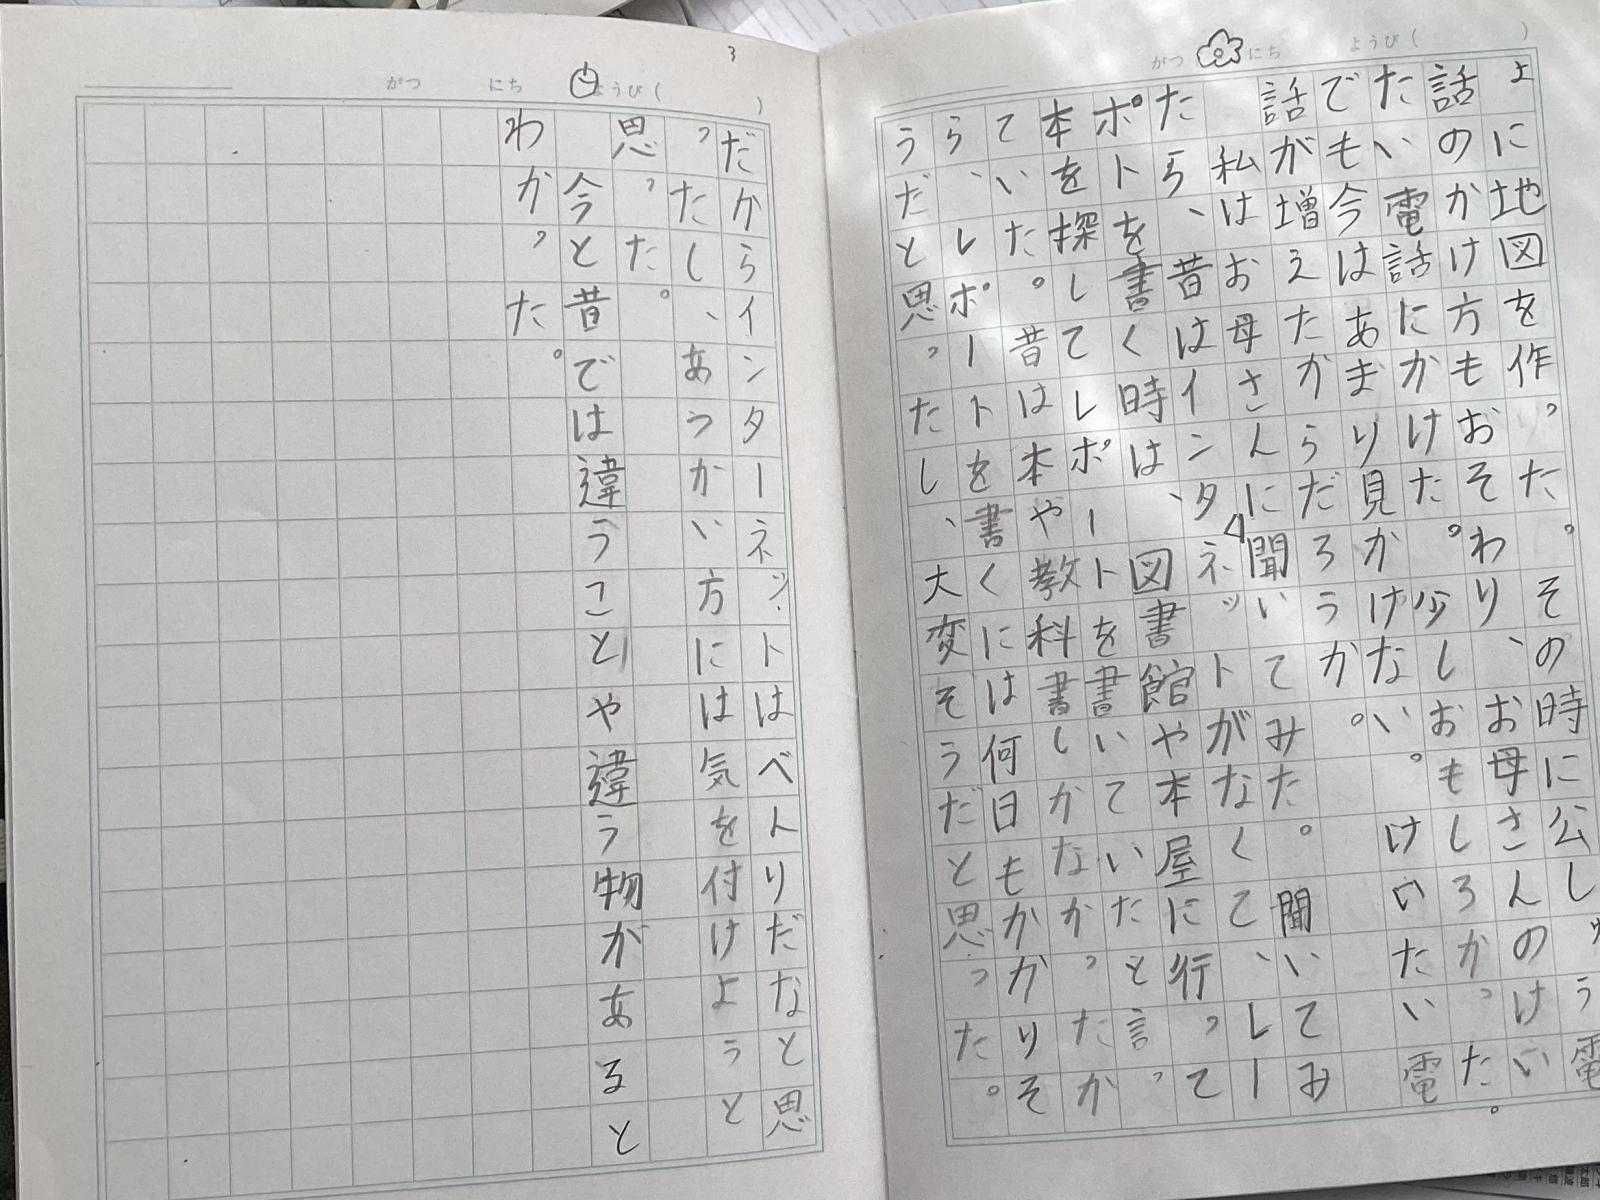 がつ にち ようび( )
ょに地図を作った。その時に公しゅう電
話のかけ方もおそわり、お母さんのけい
たい電話にかけた。少しおもしろかった。
でも今はあまり見かけない。けいたい電
話が増えたからだろうか。
　私はお母さんに聞いてみた。聞いてみ
たら、昔はインタネットがなくて、レー
ポトを書く時は、図書館や本屋に行って
本を探してレポートを書いていたと言っ
ていた。昔は本や教科書しかなかったか
ら、レポートを書くには何日もかかりそ
うだと思ったし、大変そうだと思った。
3
がつ にち ようび( )
だからインターネットはべんりだなと思
ったし、あつかい方には気を付けようと
思った。
　今と昔では違うことや違う物があると
わかった。